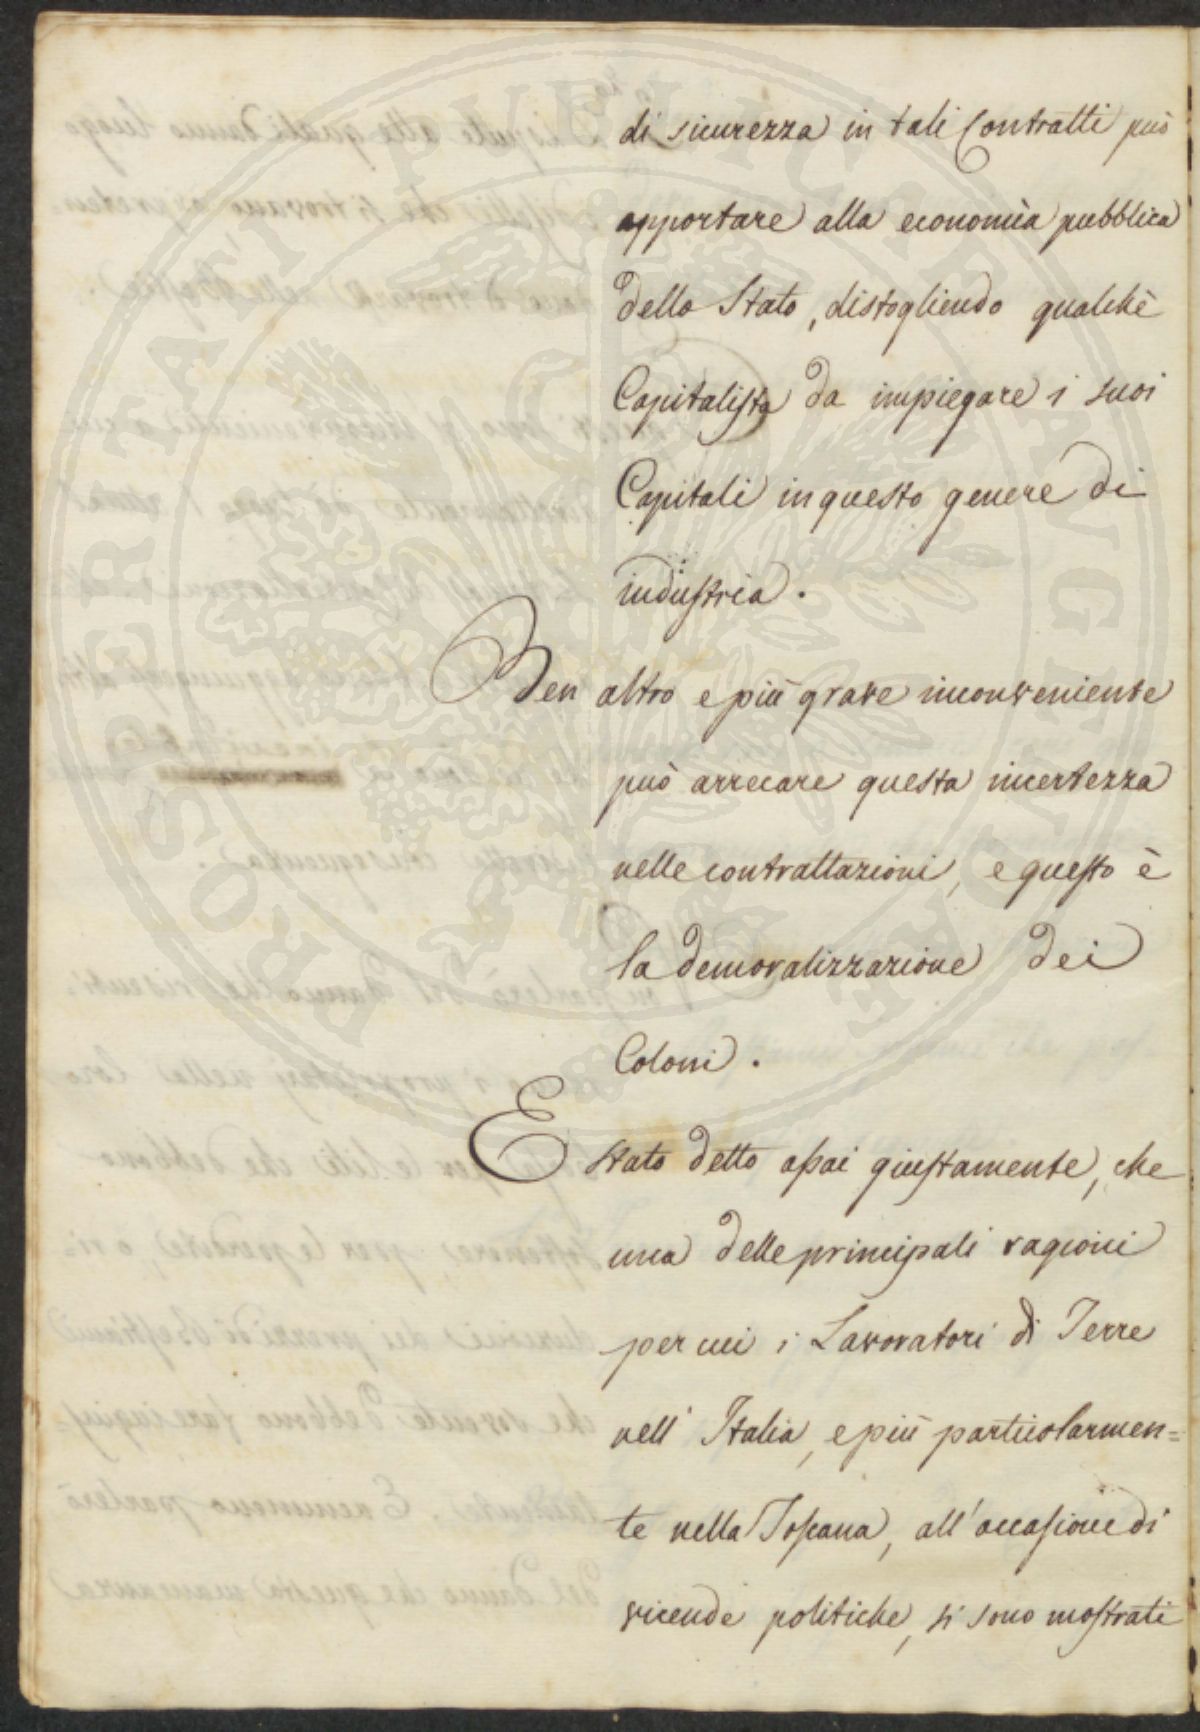 di sicurezza in tali Contratti può
apportare alla economia pubblica
dello Stato, distogliendo qualche
Capitalista da impiegare i suoi
Capitali in questo genere di
industria.
Ben altro e più grave inconveniente
può arrecare questa incertezza
nelle contrattazioni, e questo è
la demoralizzazione dei
Coloni.
E stato detto assai giustamente, che
una delle principali ragioni
per cui i Lavoratori di Terre
nell' Italia, e più particolarmen=
te nella Toscana, all'occasione di
vicende politiche, si sono mostrati
PROSPERITATI PVBLICAE AVGENDAE